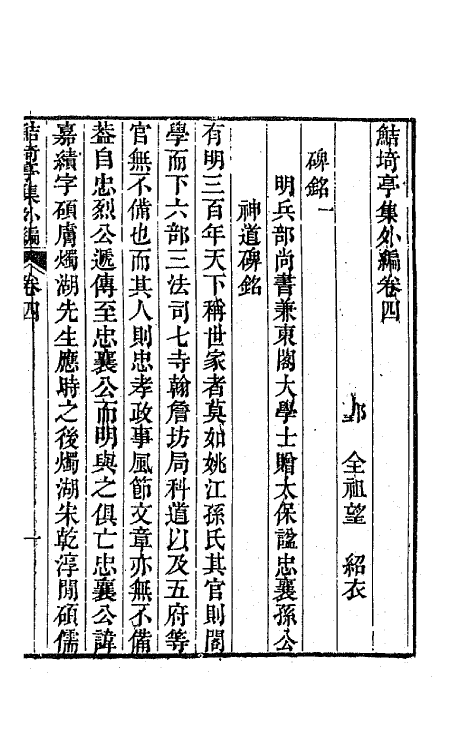 鮚埼亭集外編卷四
全祖望 紹衣
碑銘一
明兵部尚書兼東閣大學士贈太保諡忠襄孫公
神道碑銘
有明三百年天下稱世家者莫如姚江孫氏其官則閣
學而下六部三法司七寺翰詹坊局科道以及五府等
官無不備也而其人則忠孝政事風節文章亦無不備
葢自忠烈公遞傳至忠襄公而明與之俱亡忠襄公諱
嘉績字碩膚燭湖先生應時之後燭湖朱乾淳閒碩儒
鮚埼亭集外編 卷四 一